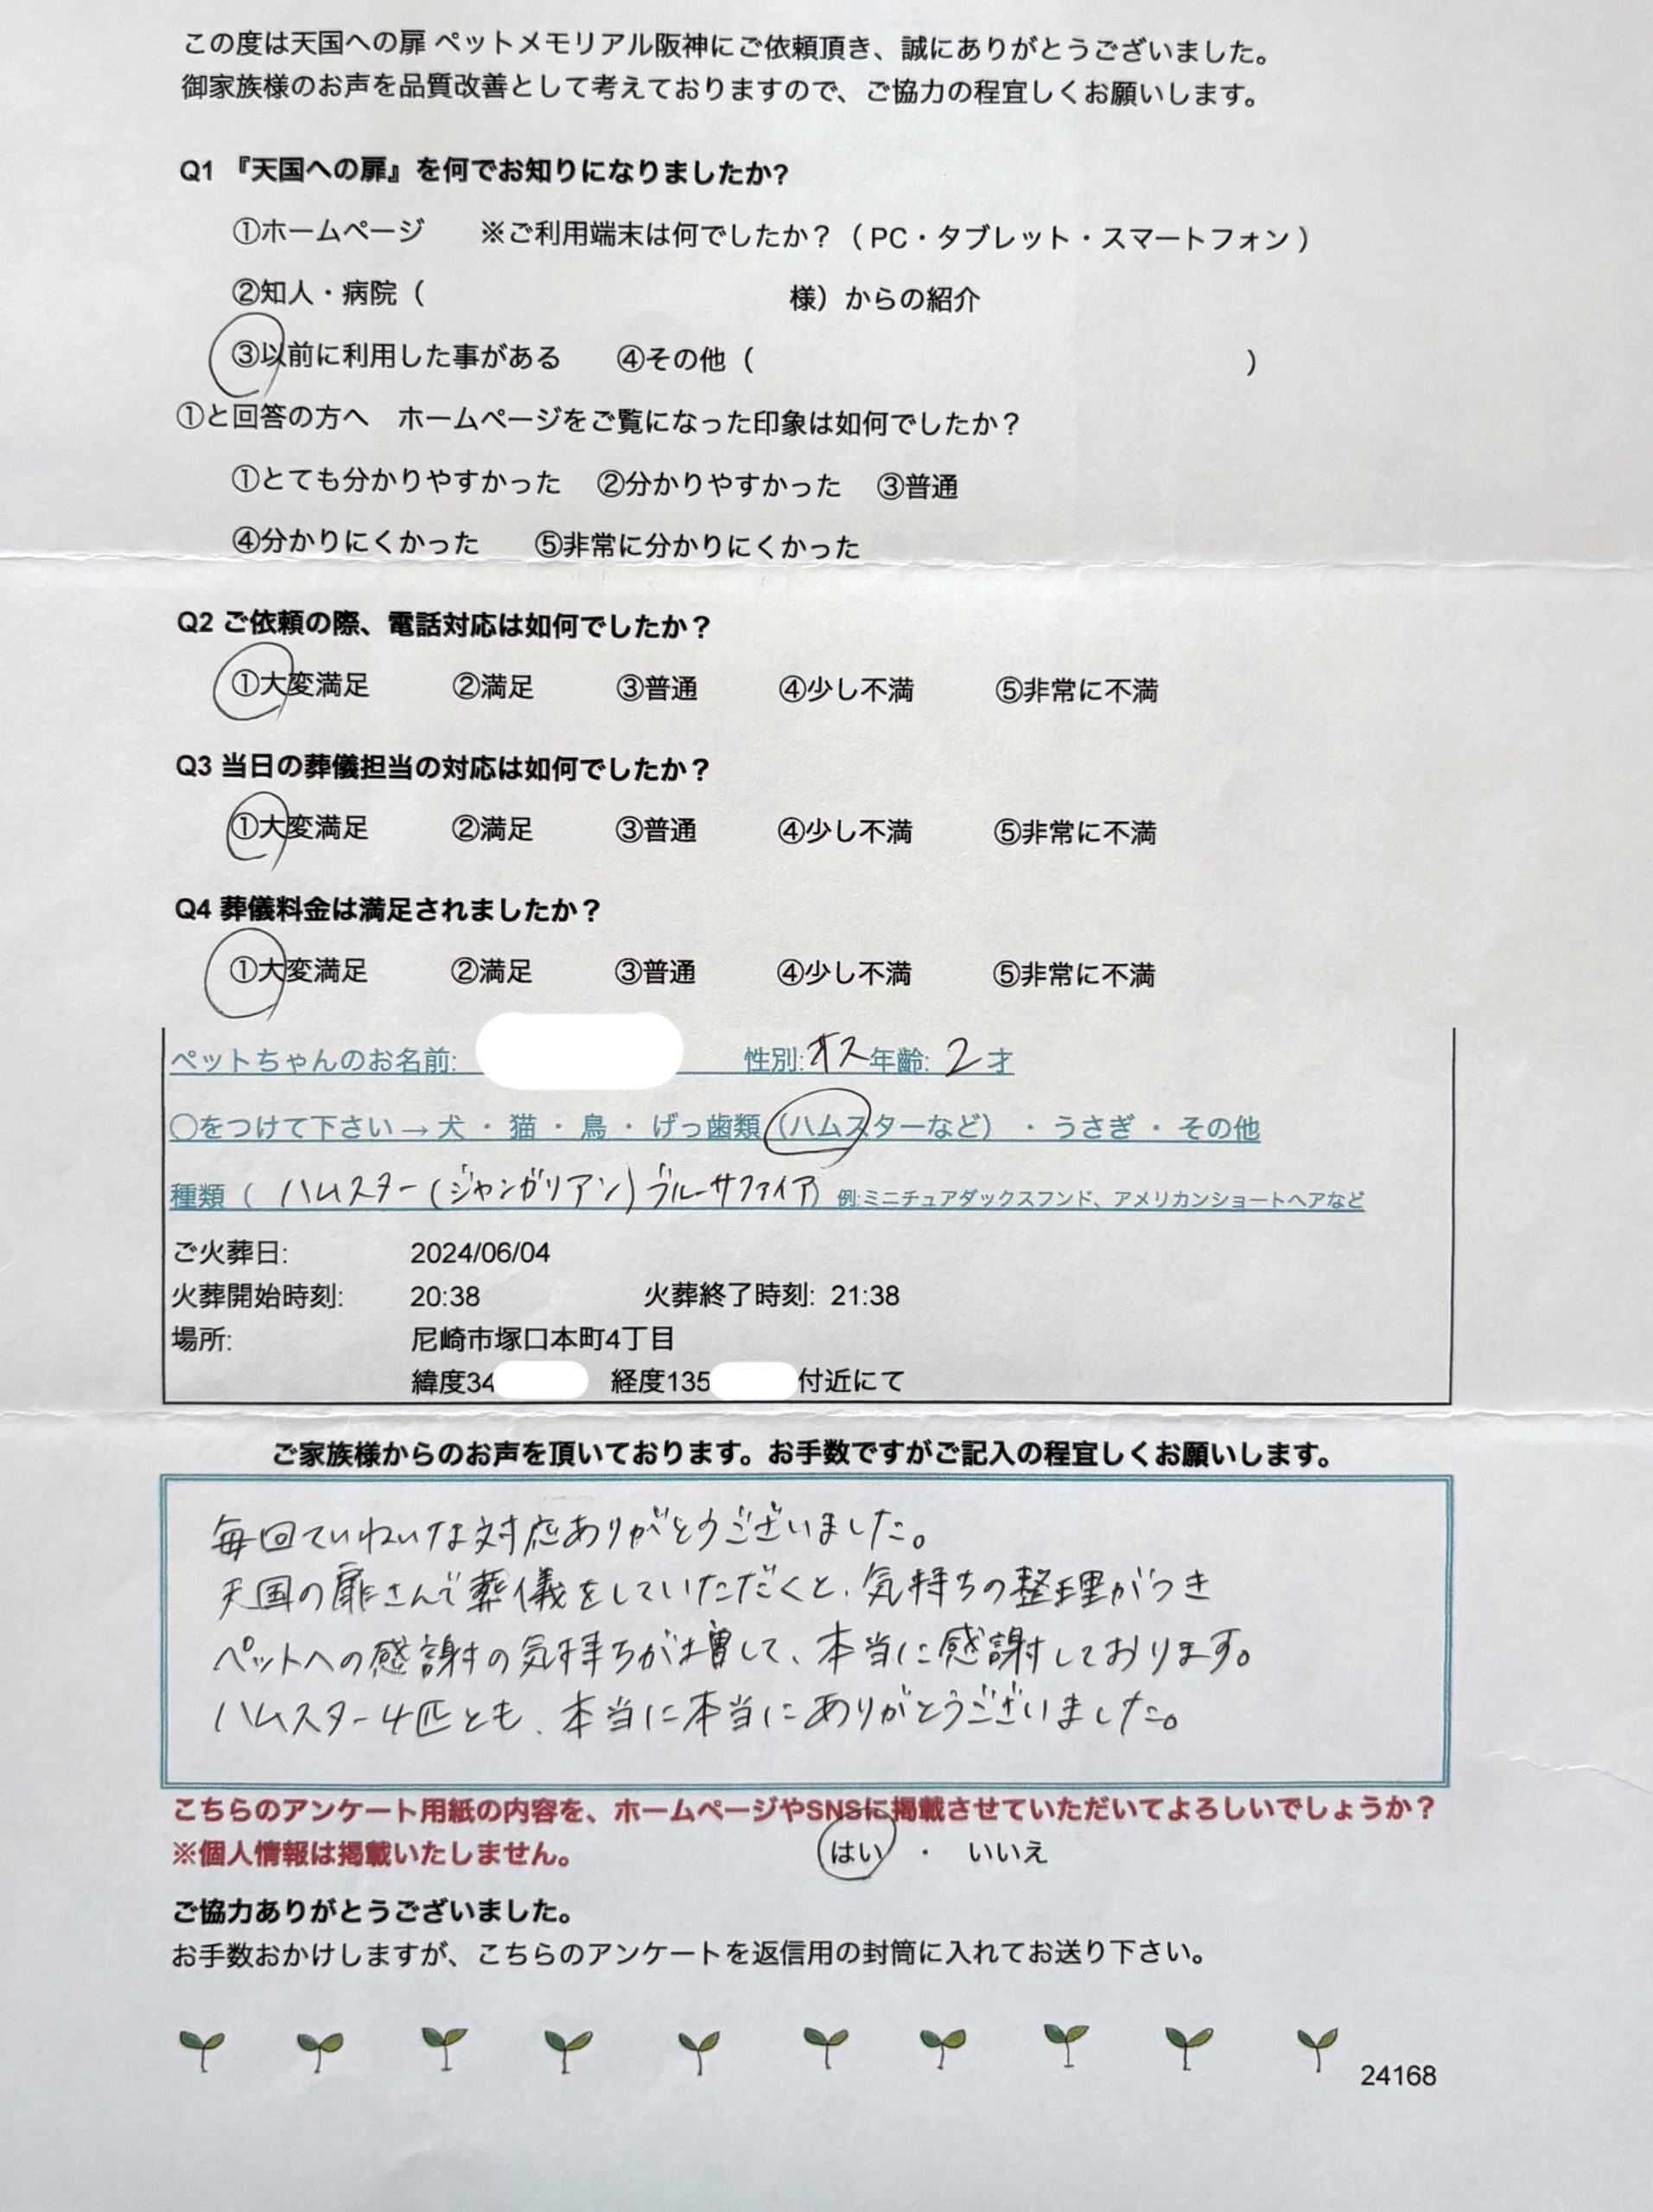 この度は天国への扉 ペットメモリアル阪神にご依頼頂き、誠にありがとうございました。
御家族様のお声を品質改善として考えておりますので、ご協力の程宜しくお願いします。
Q1 『天国への扉』を何でお知りになりましたか?
①ホームページ ※ご利用端末は何でしたか？（ PC・タブレット・スマートフォン ）
②知人・病院（ 様）からの紹介
③以前に利用した事がある ④その他（ ）
①と回答の方へ ホームページをご覧になった印象は如何でしたか？
①とても分かりやすかった ②分かりやすかった ③普通
④分かりにくかった ⑤非常に分かりにくかった
Q2 ご依頼の際、電話対応は如何でしたか？
①大変満足 ②満足 ③普通 ④少し不満 ⑤非常に不満
Q3 当日の葬儀担当の対応は如何でしたか？
①大変満足 ②満足 ③普通 ④少し不満 ⑤非常に不満
Q4 葬儀料金は満足されましたか？
①大変満足 ②満足 ③普通 ④少し不満 ⑤非常に不満
ペットちゃんのお名前: 性別:オス 年齢: 2才
○をつけて下さい→犬 ・ 猫 ・ 鳥 ・ げっ歯類（ハムスターなど） ・ うさぎ ・ その他
種類（ ハムスター(ジャンガリアン)ブルーサファイア）例:ミニチュアダックスフンド、アメリカンショートヘアなど
ご火葬日: 2024/06/04
火葬開始時刻: 20:38 火葬終了時刻: 21:38
場所: 尼崎市塚口本町4丁目
緯度34 経度135 付近にて
ご家族様からのお声を頂いております。お手数ですがご記入の程宜しくお願いします。
毎回ていねいな対応ありがとうございました。
天国の扉さんで葬儀をしていただくと、気持ちの整理がつき
ペットへの感謝の気持ちが増して、本当に感謝しております。
ハムスター4匹とも、本当に本当にありがとうございました。
こちらのアンケート用紙の内容を、ホームページやSNSに掲載させていただいてよろしいでしょうか？
※個人情報は掲載いたしません。 はい ・ いいえ
ご協力ありがとうございました。
お手数おかけしますが、こちらのアンケートを返信用の封筒に入れてお送り下さい。
24168